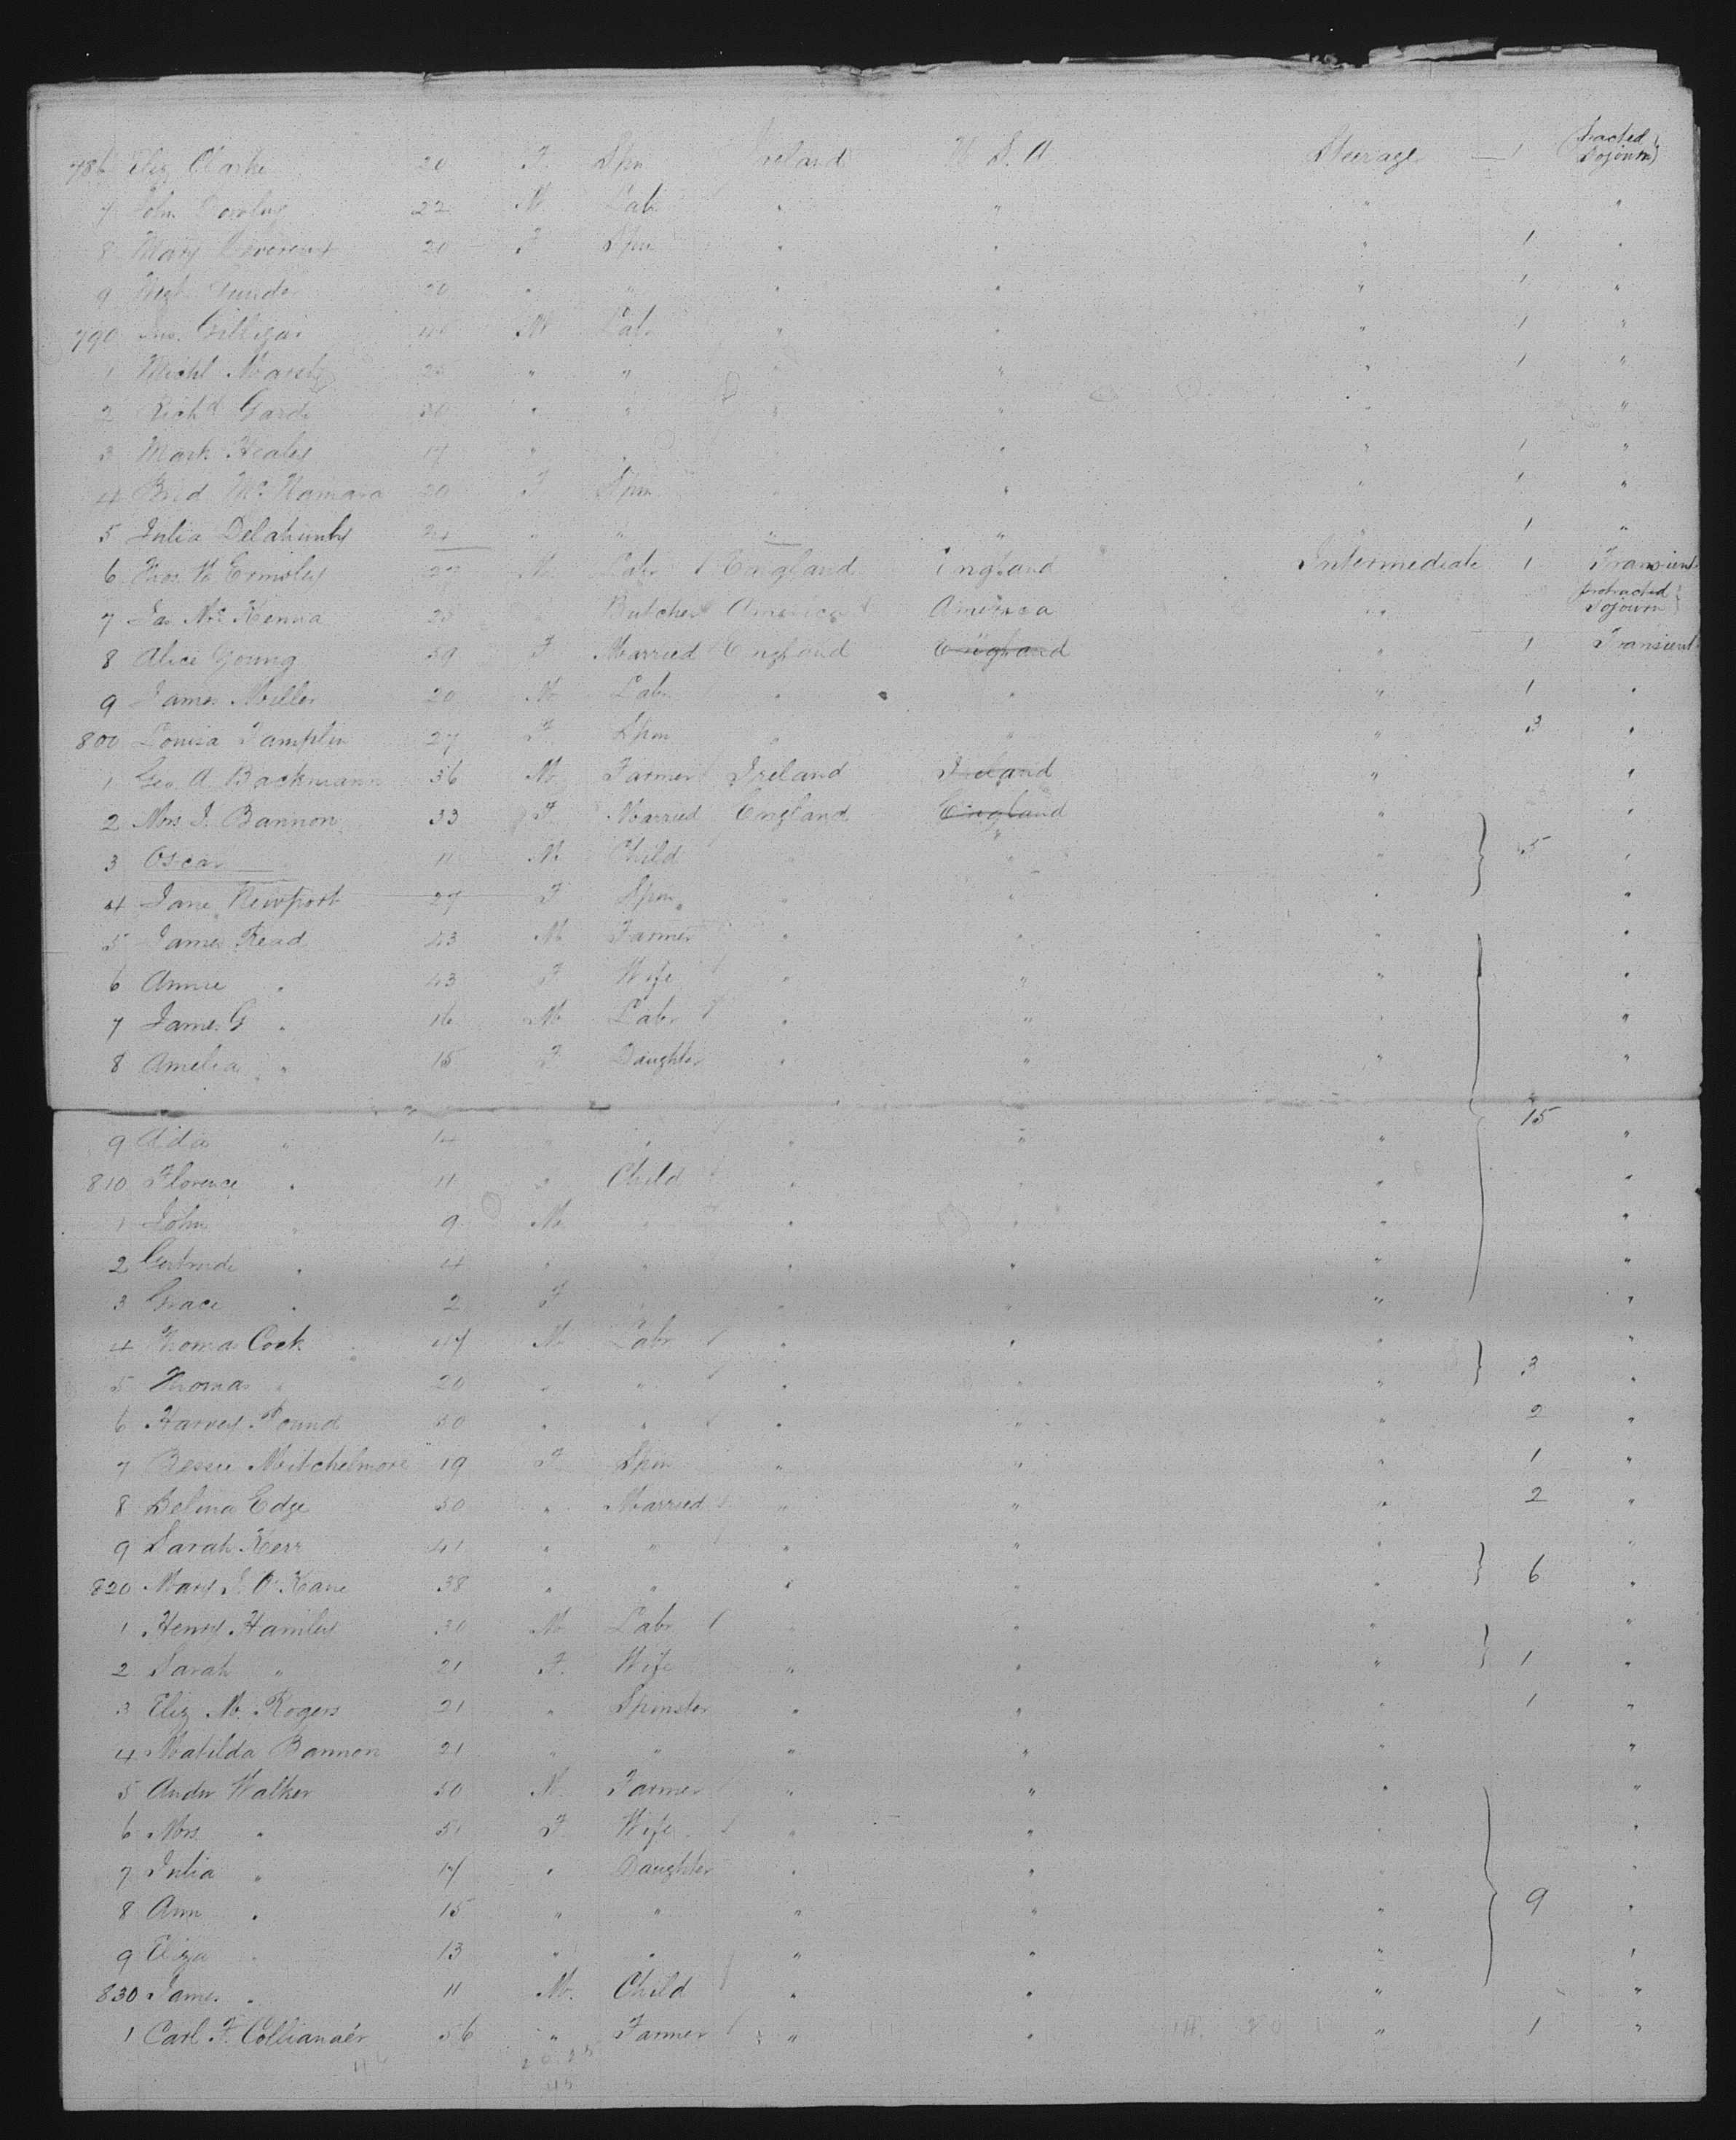 786 Eliz Clarke 20 F Spin Ireland U.S.A Steerage 1 (tracted Sojourn)
7 John Dowling 22 M Lab " " " "
8 Mary Devereux 20 F Spin " " " 1 "
9 20 " " " " " 1 "
790 Jno. Gilligan 40 M Lab " " " 1 "
1 Michl 25 " " " " " 1 "
2 Richd Garde 30 " " " " " "
3 Mark Healy 17 " " " " " 1 "
4 Brid McNamara 20 F Spin " " " 1 "
5 Julia Delahunty 24 " " " " " 1 "
6 Thos 27 M Labr England England Intermediate 1 Transient
7 Jas McKenna 28 " Butcher America America " protracted Sojourn
8 Alice Young 59 F Married England England " 1 Transient
9 James Miller 20 M Lab " " " 1 "
800 Louisa Tamplin 27 F Spin " " " 3 "
1 Geo. A. Backmann 36 M Farmer Ireland Ireland " "
2 Mrs J. Bannon 33 F Married England England " "
3 Oscar 11 M Child " " " 5 "
4 Jane Newport 27 F Spin " " " "
5 James Read 43 M Farmer " " " "
6 Annie " 43 F Wife " " " "
7 James G " 16 M Labr " " " "
8 Amelia " 15 F Daughter " " " "
15
9 Ada " 14 " " " " " "
810 Florence " 11 " Child " " " "
1 John " 9 M " " " " "
2 Gertrude " 4 " " " " " "
3 Grace " 2 F " " " " "
4 Thomas Cock 47 M Labr " " " "
5 Thomas " 20 " " " " " 3 "
6 Harvey Pound 30 " " " " " 2 "
7 Bessie Mitchelmore 19 F Spin " " " 1 "
8 Selina Edge 50 " Married " " " 2 "
9 Sarah Kerr 41 " " " " " "
820 Mary J. O'Kane 38 " " " " " 6 "
1 Henry Hamley 30 M Labr " " " "
2 Sarah " 21 F. Wife " " " 1 "
3 Eliz M. Rogers 21 " Spinster " " " 1 "
4 Matilda Bannon 21 " " " " " "
5 Andw Walker 50 M. Farmer " " " "
6 Mrs " 51 F Wife " " " "
7 Julia " 17 " Daughter " " " "
8 Ann " 15 " " " " " 9 "
9 Eliza " 13 " " " " " "
830 James " 11 M. Child " " " "
1 Carl F. Collianaér 56 " Farmer " " " 1 "